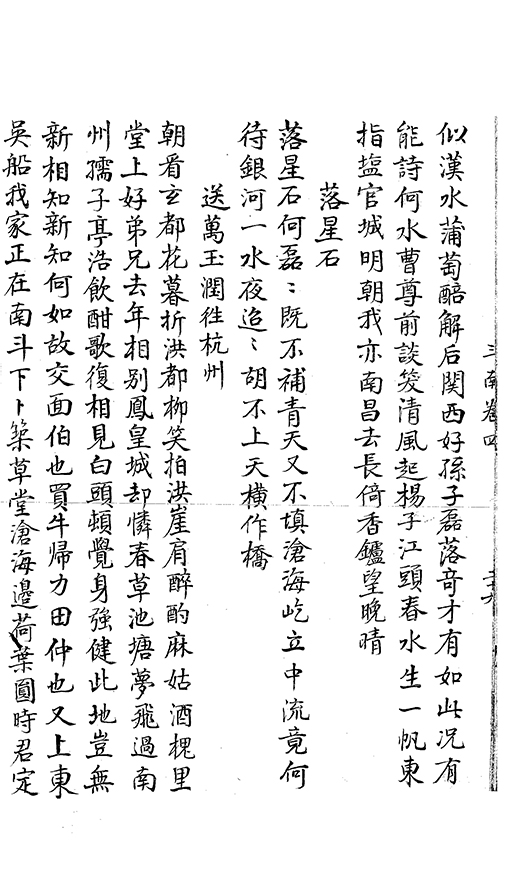 斗南卷四
似漢水蒲萄醅解后関西好孫子磊落奇才有如此况有
能詩何水曹尊前談笑清風起揚子江頭春水生一帆東
指塩官城明朝我亦南昌去長倚香鑪望晩晴
落星石
落星石何磊〻既不補青天又不填滄海屹立中流竟何
待銀河一水夜迢〻胡不上天横作橋
送萬玉潤徃杭州
朝看玄都花暮折洪都柳笑拍洪崖肩醉酌麻姑酒槐里
堂上好弟兄去年相别鳳皇城却憐春草池塘夢飛過南
州孺子亭浩飲酣歌復相見白頭頓覺身強健此地豈無
新相知新知何如故交面伯也買牛帰力田仲也又上東
吳船我家正在南斗下卜築草堂滄海邊荷葉圓時君定